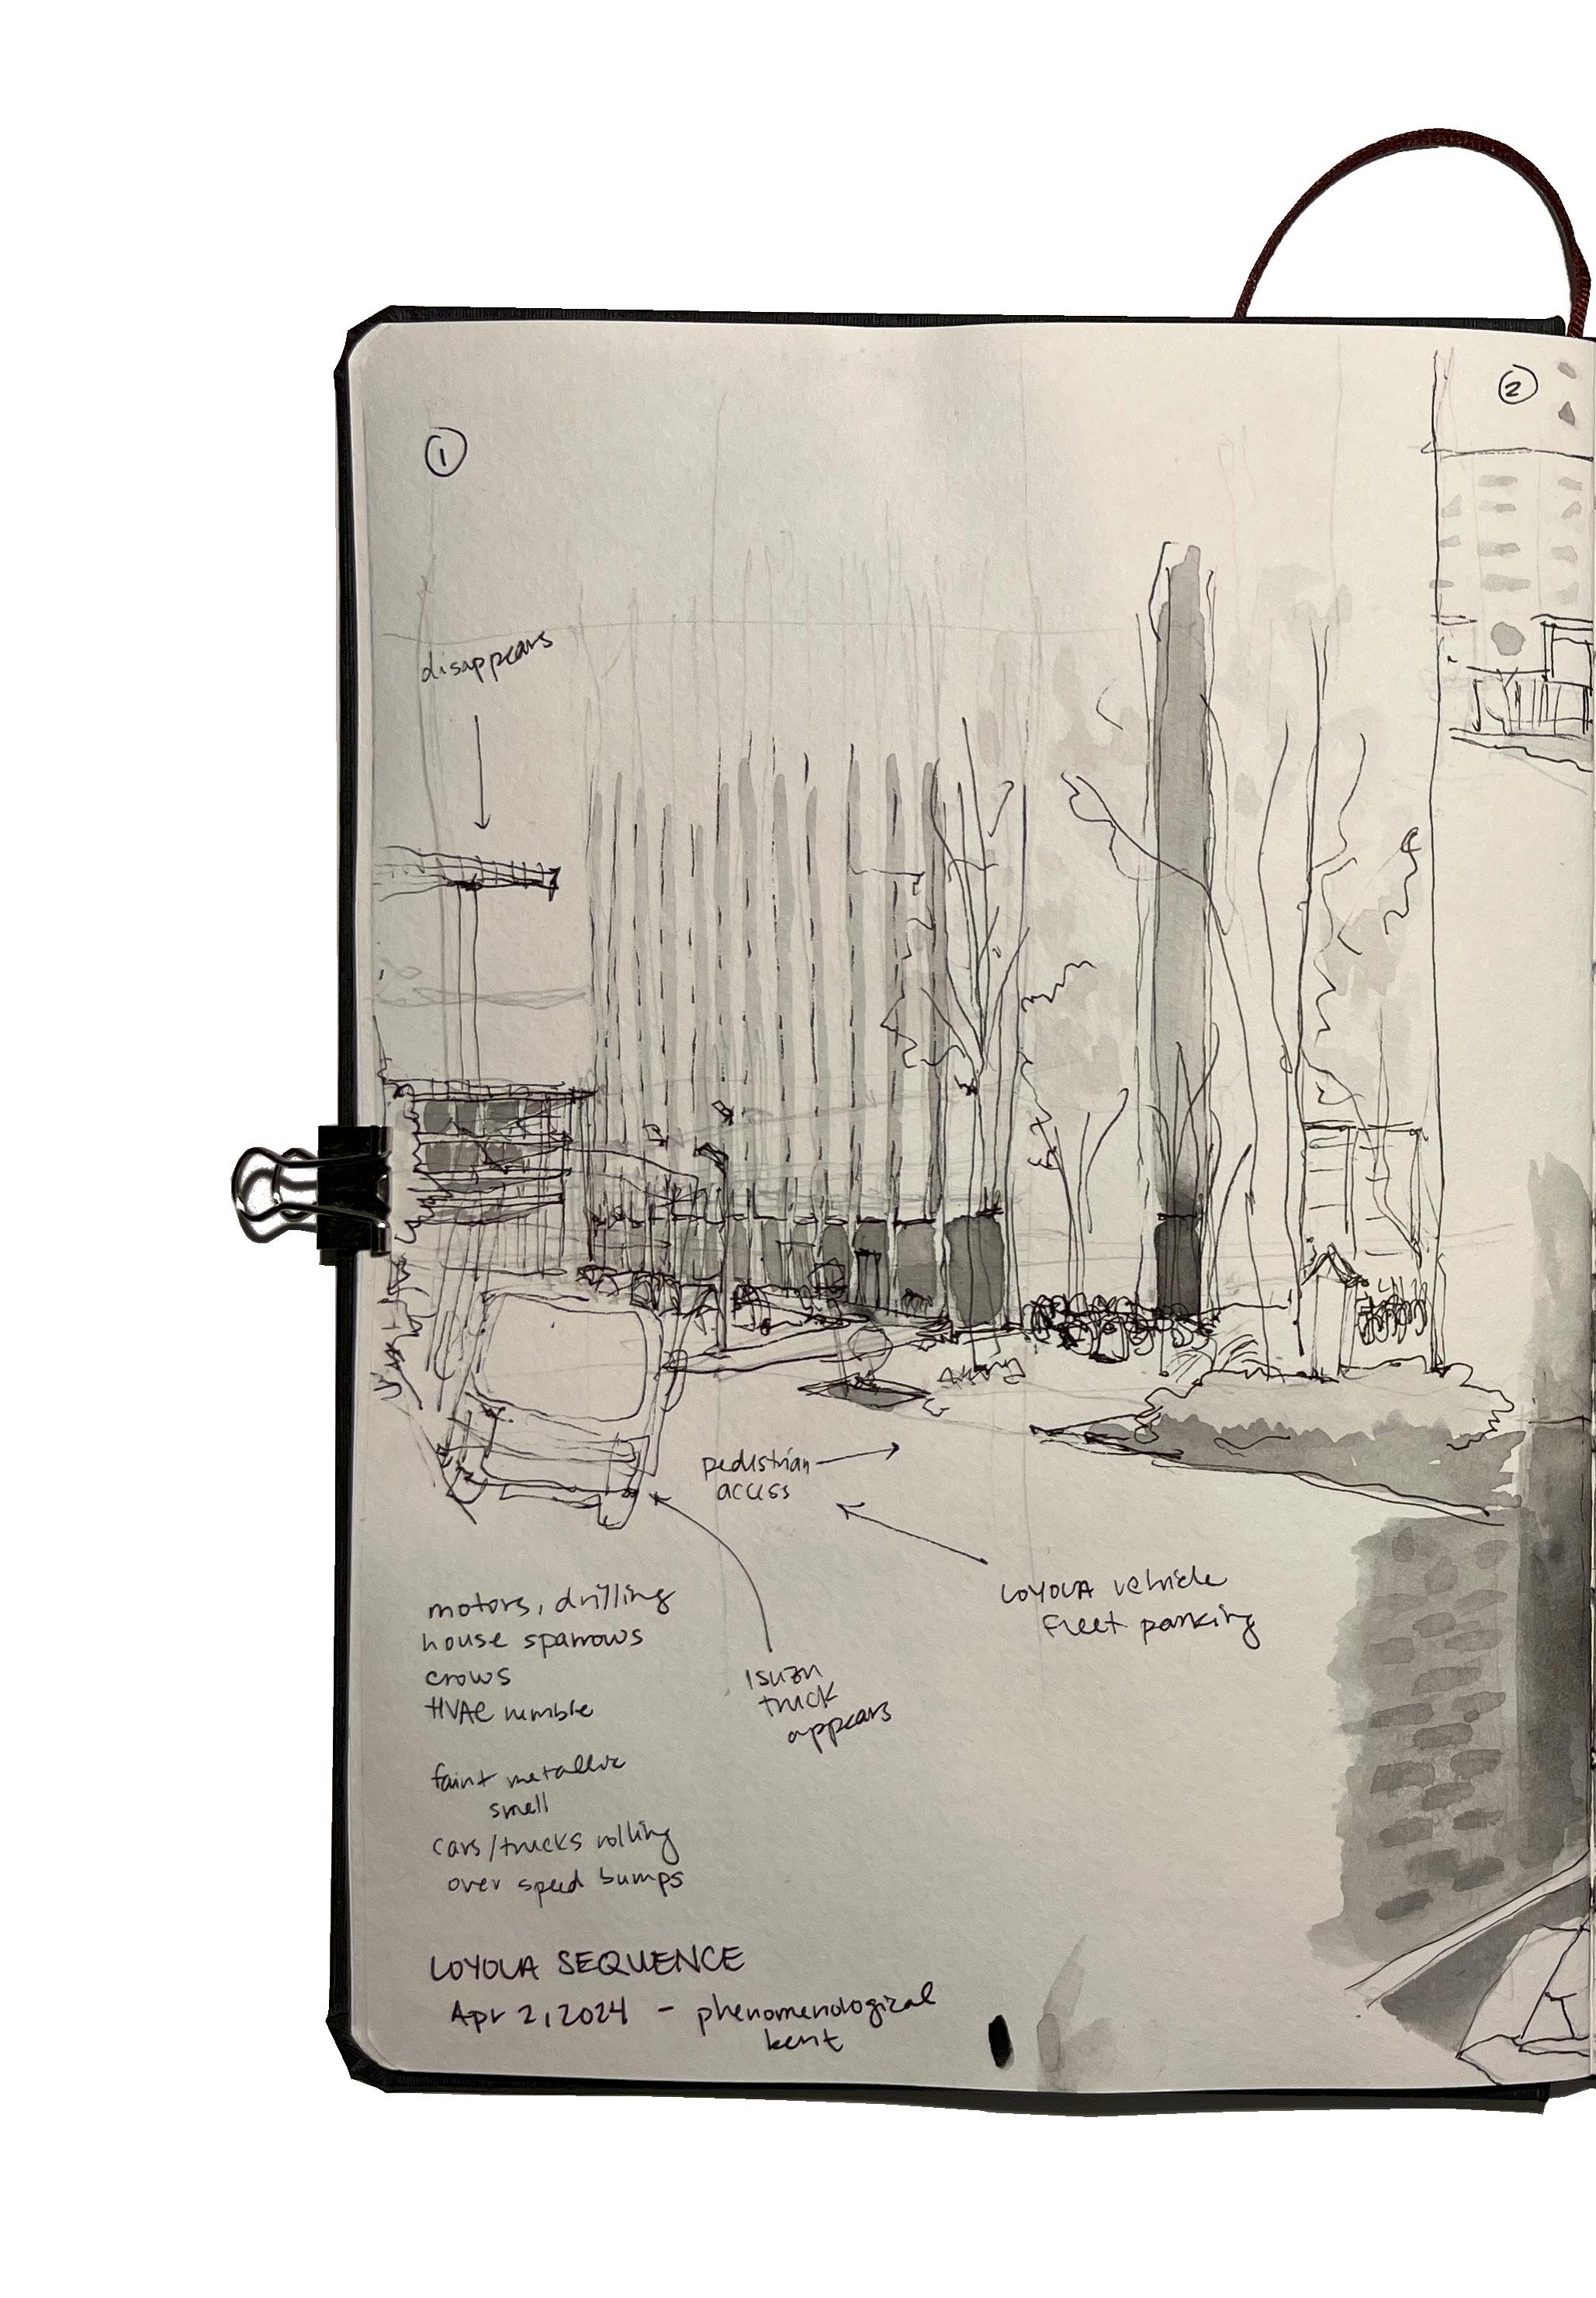 1
2
disappears
pedestrian
access
LOYOLA vehicle
fleet parking
Isuzu
truck
appears
motors, drilling
house sparrows
crows
HVAC rumble
faint metallic
smell
cars/trucks rolling
over speed bumps
LOYOLA SEQUENCE
Apr 2, 2024 - phenomenological
kent